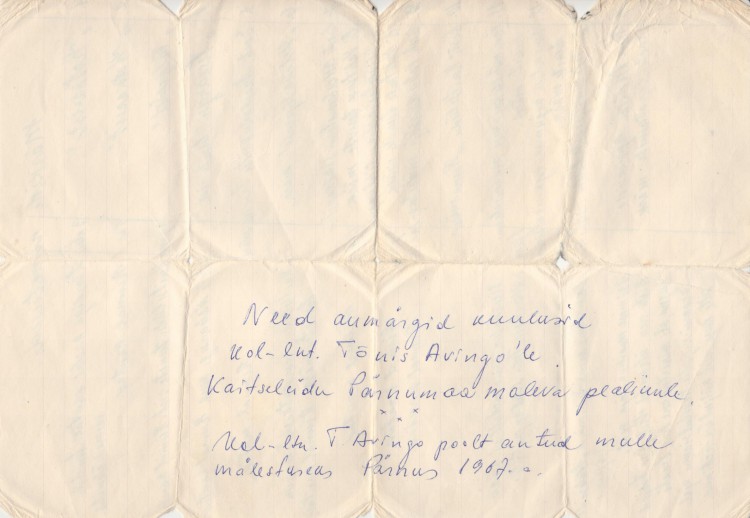 Need aumärgid kuulusid
kol-lnt. Tõnis Avingo'le.
Kaitseliidu Pärnumaa maleva pealikule.
x x x
Kol-ltn. T. Avingo poolt antud mulle
mälestuseks Pärnus 1967. a.